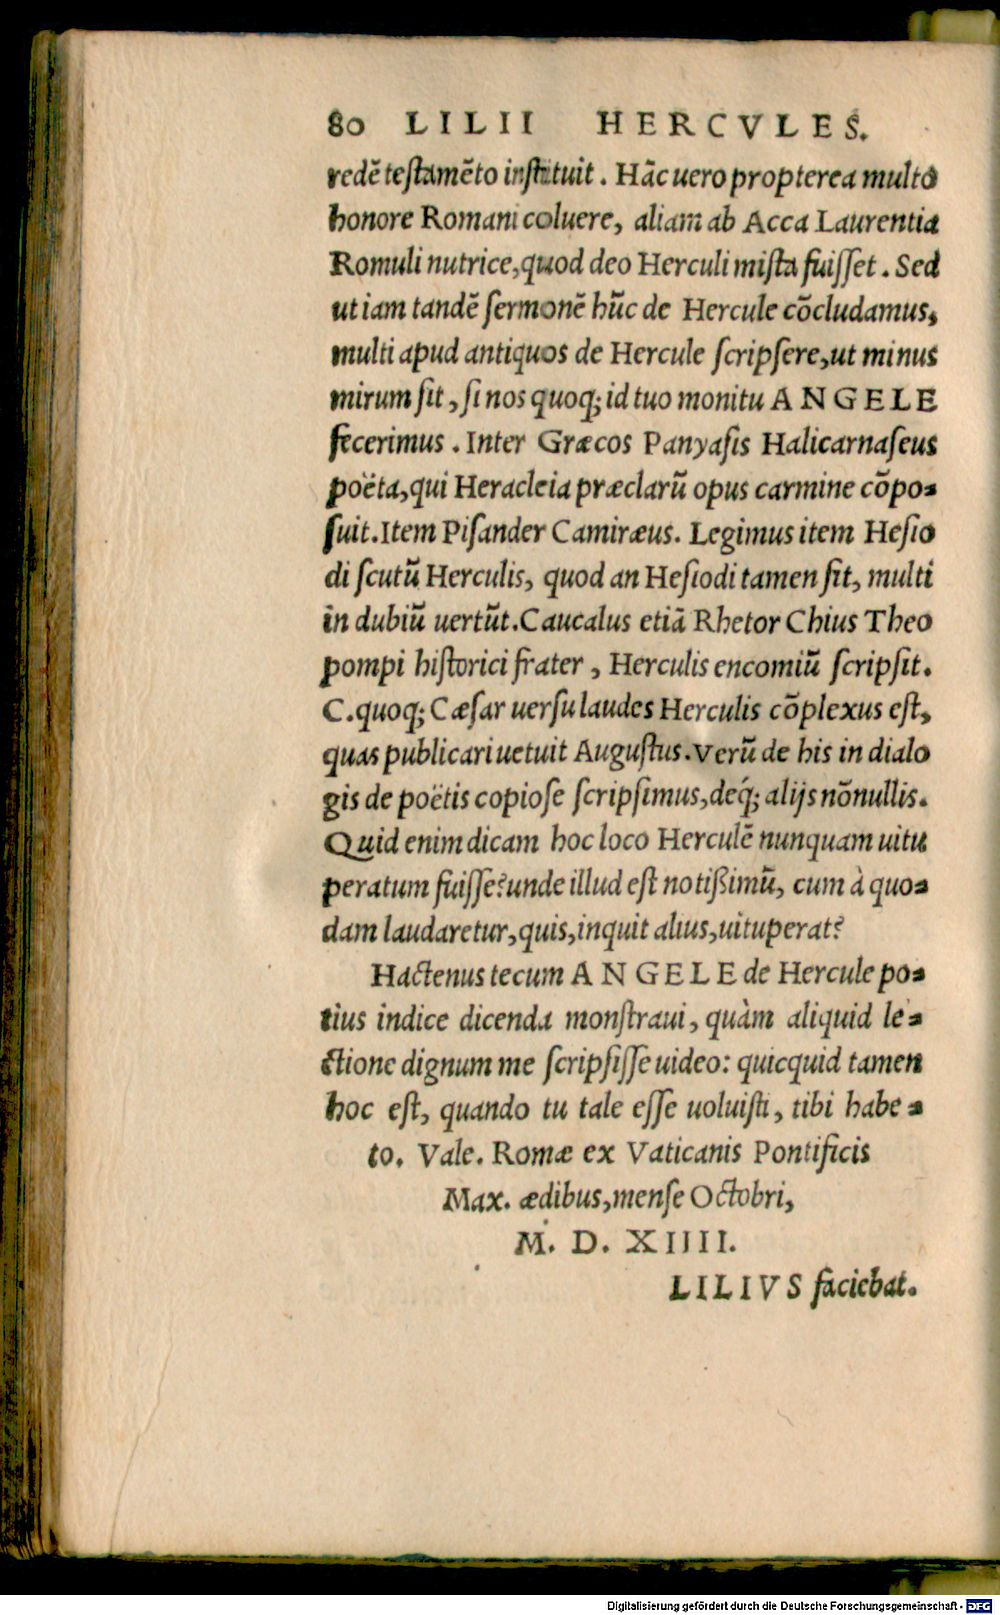 80 LILII HERCVLES.
redē testamēto instituit. Hāc uero propterea multo
honore Romani coluere, aliam ab Acca Laurentia
Romuli nutrice, quod deo Herculi mista fuiſſet. Sed
ut iam tandē ſermonē hūc de Hercule cōcludamus,
multi apud antiquos de Hercule ſcripſere, ut minus
mirum ſit, ſi nos quoq; id tuo monitu ANGELE
fecerimus. Inter Græcos Panyaſis Halicarnaſeus
poëta, qui Heracleia præclarū opus carmine cōpo-
ſuit. Item Piſander Camiræus. Legimus item Heſio
di ſcutū Herculis, quod an Heſiodi tamen ſit, multi
in dubiū uertūt. Caucalus etiā Rhetor Chius Theo
pompi hiſtorici frater, Herculis encomiū ſcripſit.
C. quoq; Cæſar uerſu laudes Herculis cōplexus eſt,
quas publicari uetuit Auguſtus. Verū de his in dialo
gis de poëtis copioſe ſcripſimus, deq́; alijs nōnullis.
Quid enim dicam hoc loco Herculē nunquam uitu
peratum fuiſſe? unde illud eſt notißimū, cum à quo-
dam laudaretur, quis, inquit alius, uituperat?
Hactenus tecum ANGELE de Hercule po-
tius indice dicenda monſtraui, quàm aliquid le-
ctione dignum me ſcripſiſſe uideo: quicquid tamen
hoc eſt, quando tu tale eſſe uoluiſti, tibi habe-
to. Vale. Romæ ex Vaticanis Pontificis
Max. ædibus, menſe Octobri,
M. D. XIIII.
LILIVS faciebat.
Digitalisierung gefördert durch die Deutsche Forschungsgemeinschaft - DFG